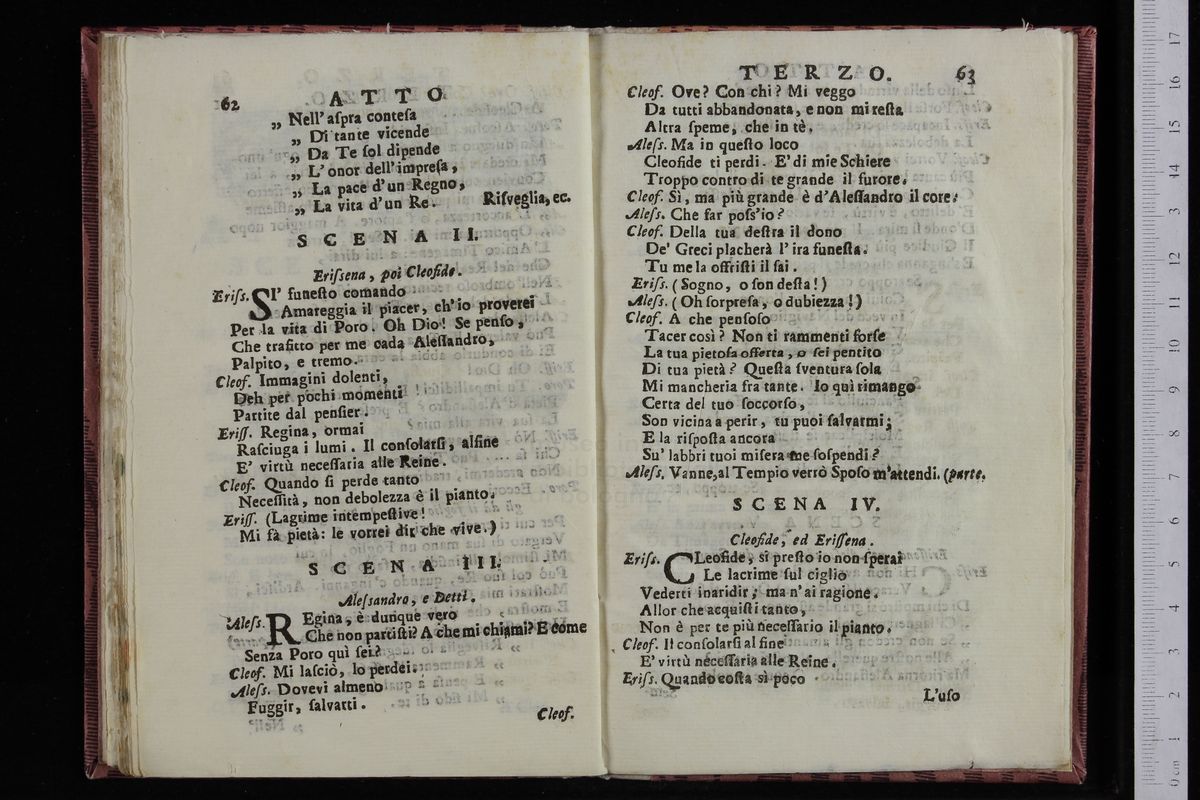 62
ATTO
„ Nell' aſpra conteſa
„ Di tante vicende
„ Da Te ſol dipende
„ L' onor dell' impreſa,
„ La pace d' un Regno,
„ La vita d' un Re. Riſveglia, ec.
SCENA II.
Eriſsena, poi Cleofide.
Eriſs. SI' funeſto comando
Amareggia il piacer, ch' io proverei
Per la vita di Poro. Oh Dio! Se penſo,
Che trafitto per me cada Aleſſandro,
Palpito, e tremo.
Cleof. Immagini dolenti,
Deh per pochi momenti
Partite dal penſier.
Eriſſ. Regina, ormai
Raſciuga i lumi. Il conſolarſi, alfine
E' virtù neceſſaria alle Reine.
Cleof. Quando ſi perde tanto
Neceſſità, non debolezza è il pianto.
Eriſſ. (Lagrime intempeſtive!
Mi fà pietà: le vorrei dir che vive.)
SCENA III.
Aleſsandro, e Detti.
Aleſs. REgina, è dunque vero
Che non partiſti? A che mi chiami? E come
Senza Poro quì ſei?
Cleof. Mi laſciò, lo perdei.
Aleſs. Dovevi almeno
Fuggir, ſalvarti.
Cleof.
TERZO.
63
Cleof. Ove? Con chi? Mi veggo
Da tutti abbandonata, e non mi reſta
Altra ſpeme, che in tè.
Aleſs. Ma in queſto loco
Cleofide ti perdi. E' di mie Schiere
Troppo contro di te grande il furore.
Cleof. Sì, ma più grande è d' Aleſſandro il core.
Aleſs. Che far poſs' io?
Cleof. Della tua deſtra il dono
De' Greci placherà l' ira funeſta.
Tu me la offriſti il ſai.
Eriſs. (Sogno, o ſon deſta!)
Aleſs. (Oh ſorpreſa, o dubiezza!)
Cleof. A che penſoſo
Tacer così? Non ti rammenti forſe
La tua pietoſa offerta, o ſei pentito
Di tua pietà? Queſta ſventura ſola
Mi mancheria fra tante. Io quì rimango
Certa del tuo ſoccorſo,
Son vicina a perir, tu puoi ſalvarmi;
E la riſpoſta ancora
Su' labbri tuoi miſera me ſoſpendi?
Aleſs. Vanne, al Tempio verrò Spoſo m' attendi. (parte.
SCENA IV.
Cleofide, ed Eriſſena.
Eriſs. CLeofide, sì preſto io non ſperai
Le lacrime ſul ciglio
Vederti inaridir; ma n' ai ragione.
Allor che acquiſti tanto,
Non è per te più neceſſario il pianto.
Cleof. Il conſolarſi al fine
E' virtù néceſſaria alle Reine.
Eriſs. Quando coſta sì poco
L' uſo